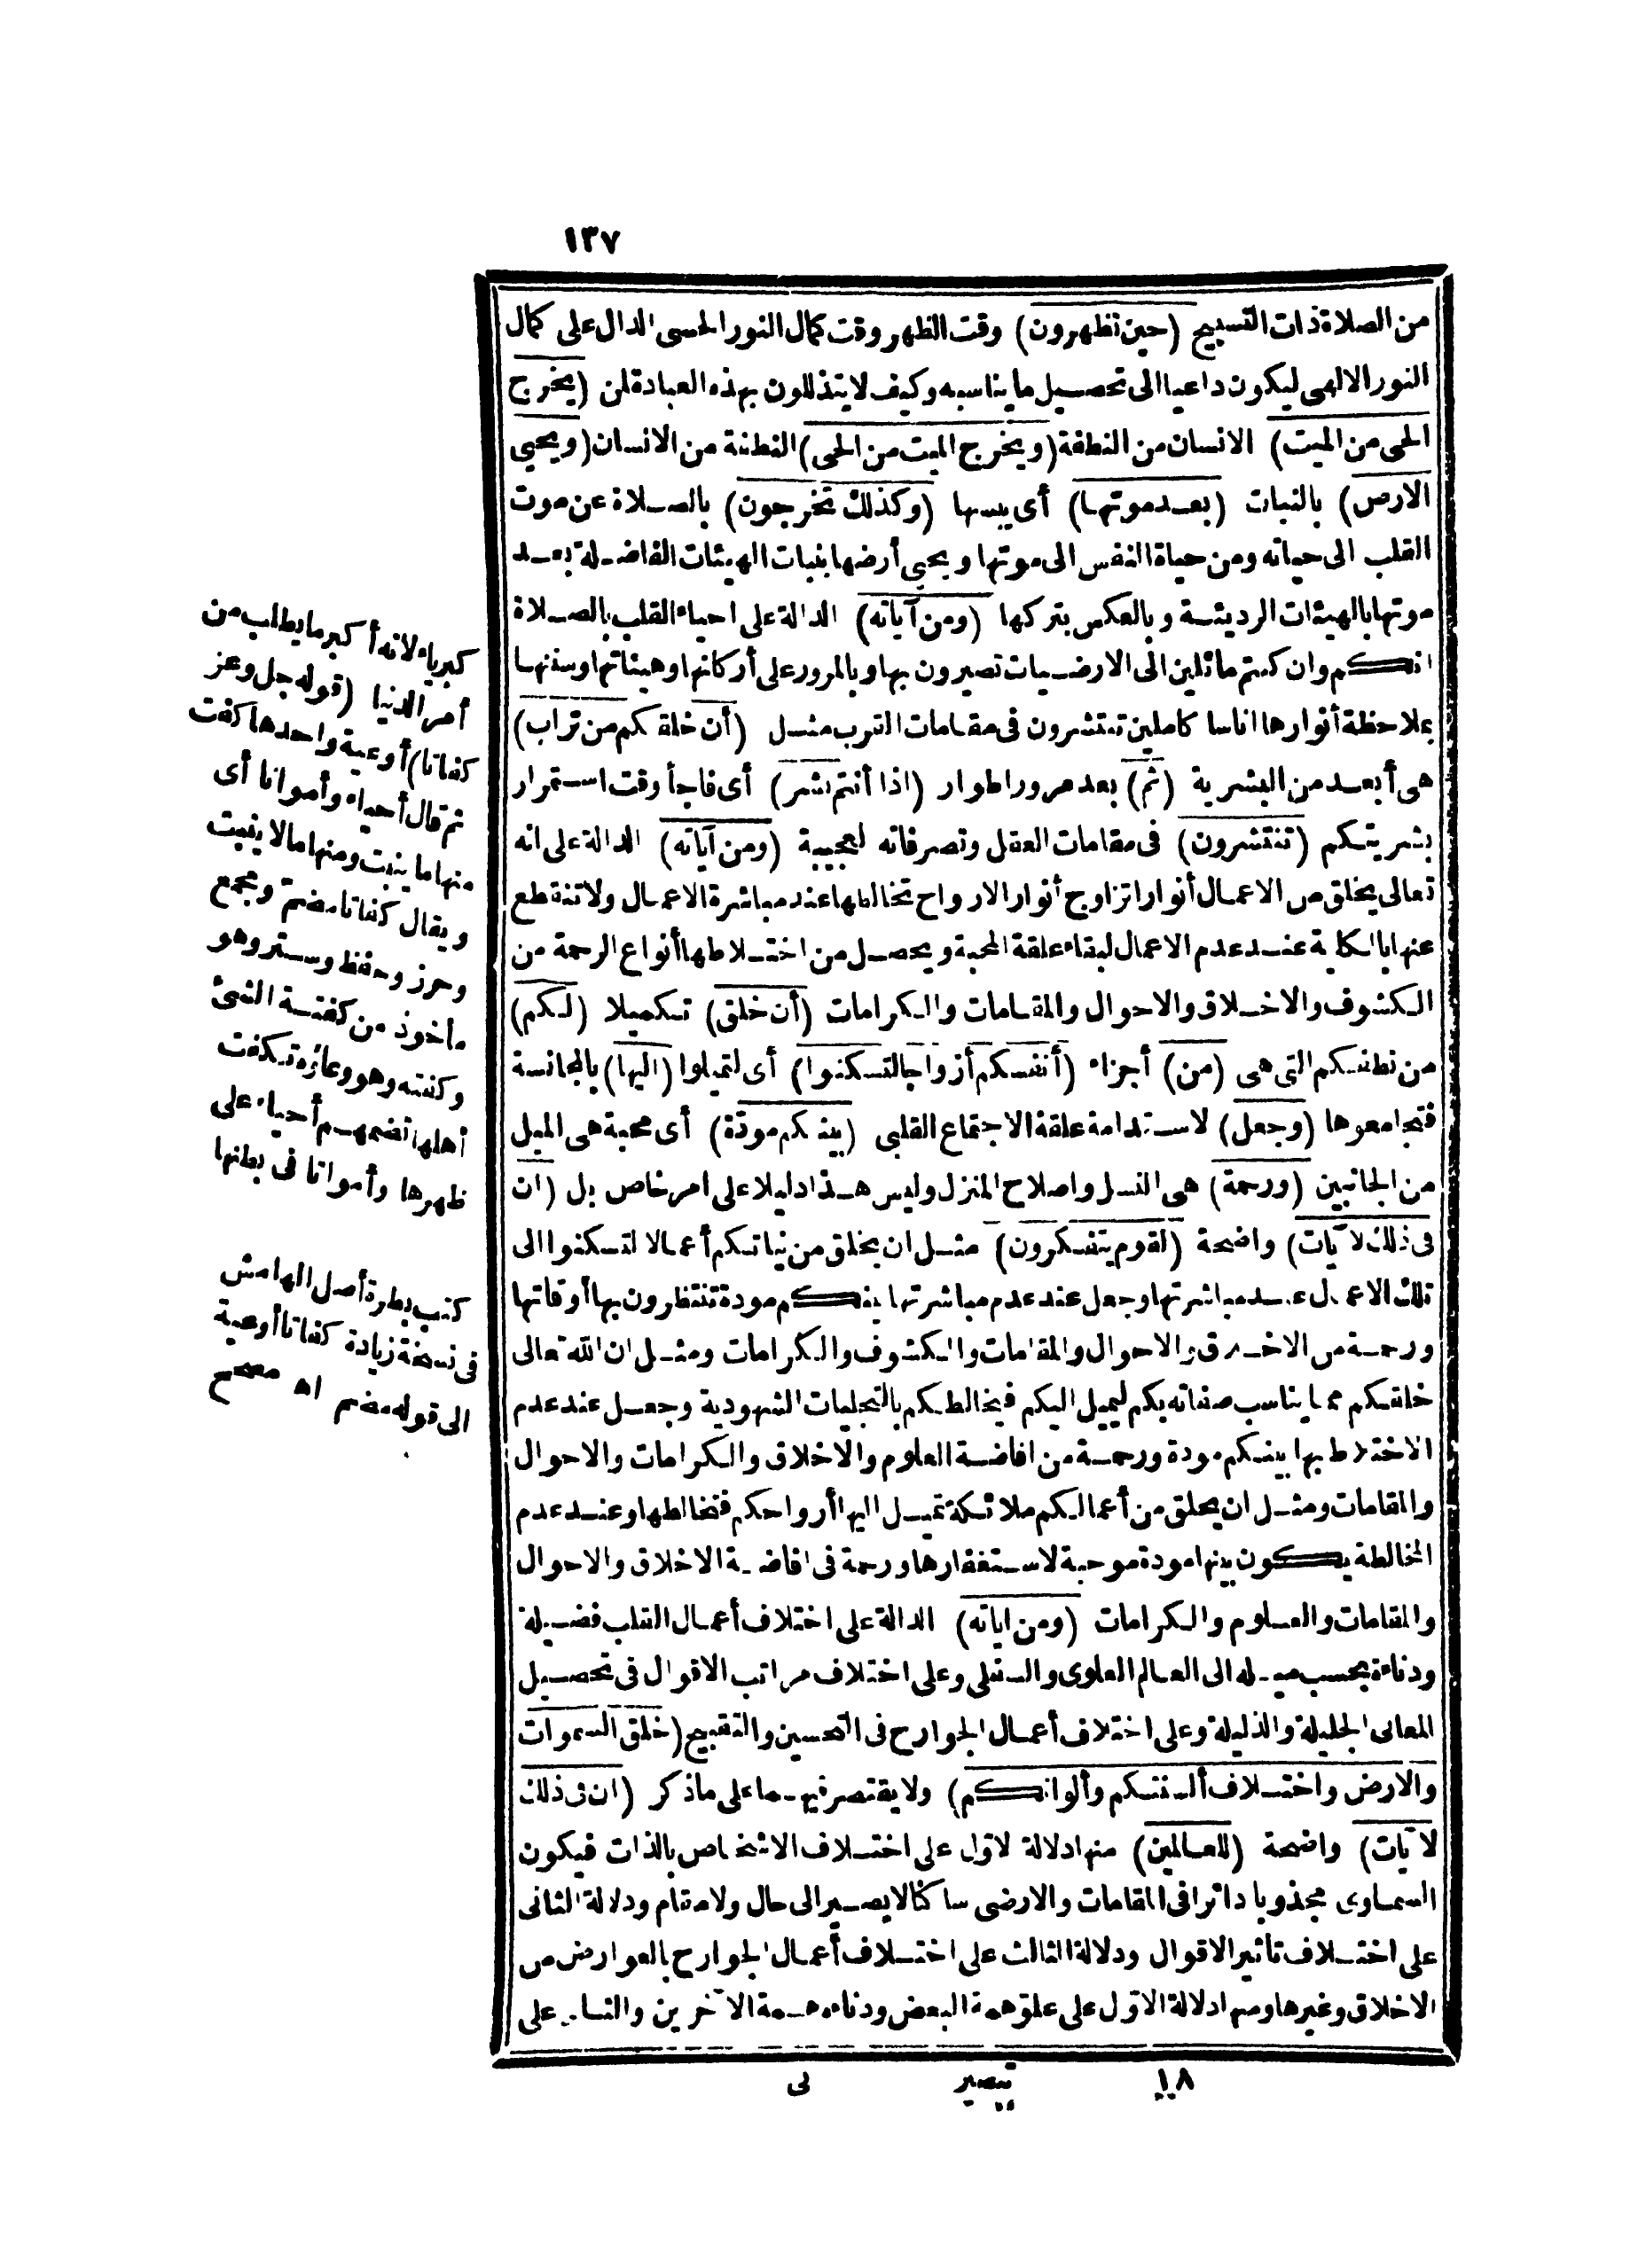 ١٣٧
من الصلاة ذات التسبيح (حين تظهرون) وقت الظهر وقت كمال النور الحسى الدال على كمال
النور الالهى ليكون داعيا الى تحصيل ما يناسبه وكيف لا يتذللون بهذه العبادة لمن (يخرج
الحى من الميت) الانسان من النطفة (ويخرج الميت من الحى) النطفة من الانسان (ويحيى
الارض) بالنبات (بعد موتها) أى يبسها (وكذلك تخرجون) بالصلاة عن موت
القلب الى حياته ومن حياة النفس الى موتها ويحيى أرضها بنبات الهيئات الفاضلة بعد
موتها بالهيئات الرديئة وبالعكس بتركها (ومن آياته) الدالة على احياء القلب بالصلاة
انكم وان كنتم مائلين الى الارضيات تصيرون بها وبالمرور على أركانها وهيئاتها وسننها
بملاحظة أنوارها اناسا كاملين تنتشرون فى مقامات القرب مثل (أن خلقكم من تراب)
هى أبعد من البشرية (ثم) بعد مرور اطوار (اذا أنتم بشر) أى فاجأ وقت استمرار
بشريتكم (تنتشرون) فى مقامات العقل وتصرفاته العجيبة (ومن آياته) الدالة على انه
تعالى يخلق من الاعمال أنوارا تزاوج أنوار الارواح تخالطها عند مباشرة الاعمال ولا تنقطع
عنها بالكلية عند عدم الاعمال لبقاء علقة المحبة ويحصل من اختلاطها أنواع الرحمة من
الكشوف والاخلاق والاحوال والمقامات والكرامات (أن خلق) تكميلا (لكم)
من نطفكم التى هى (من) أجزاء (أنفسكم أزواجا لتسكنوا) أى لتميلوا (اليها) بالمجانسة
فتجامعوها (وجعل) لاستدامة علقة الاجتماع القلبى (بينكم مودّة) أى محبة هى الميل
من الجانبين (ورحمة) هى النسل واصلاح المنزل وليس هذا دليلا على امر خاص بل (ان
فى ذلك لآيات) واضحة (لقوم يتفكرون) مثل ان يخلق من نياتكم أعمالا لتسكنوا الى
تلك الاعمال عند مباشرتها وجعل عند عدم مباشرتها بينكم مودة تنتظرون بها أوقاتها
ورحمة من الاخلاق والاحوال والمقامات والكشوف والكرامات ومثل ان الله تعالى
خلقكم مما يناسب صفاته بكم ليميل اليكم فيخالطكم بالتجليات الشهودية وجعل عند عدم
الاختلاط بها بينكم مودة ورحمة من افاضة العلوم والاخلاق والكرامات والاحوال
والمقامات ومثل ان يخلق من أعمالكم ملائكة تميل اليها أرواحكم فتخالطها وعند عدم
المخالطة يكون بينها مودة موجبة لاستغفارها ورحمة فى افاضة الاخلاق والاحوال
والمقامات والعلوم والكرامات (ومن اياته) الدالة على اختلاف أعمال القلب فضيلة
ودناءة بحسب ميله الى العالم العلوى والسفلى وعلى اختلاف مراتب الاقوال فى تحصيل
المعانى الجليلة والذليلة وعلى اختلاف أعمال الجوارح فى التحسين والتقبيح (خلق السموات
والارض واختلاف ألسنتكم وألوانكم) ولا يقتصر فيهما على ما ذكر (ان فى ذلك
لآيات) واضحة (للعالمين) منها دلالة الاوّل على اختلاف الاشخاص بالذات فيكون
السماوى مجذوبا دائرا فى المقامات والارضى ساكنا لا يصير الى حال ولا مقام ودلالة الثانى
على اختلاف تأثير الاقوال ودلالة الثالث على اختلاف أعمال الجوارح بالعوارض من
الاخلاق وغيرها ومنها دلالة الاوّل على علوّ همة البعض ودناءة همة الآخرين والثانى على
١٨ تبصير نى
كبرياء لانه أكبر ما يطلب من
أمر الدنيا (قوله جل وعز
كفاتا) أوعية واحدها كفت
ثم قال أحياء وأمواتا أى
منها ما ينبت ومنها ما لا ينبت
ويقال كفاتا مضمّ ومجمع
وحرز وحفظ وستر وهو
مأخوذ من كفتة الشئ
وكفته وهو وعاؤه تكفت
أهلها تضمهم أحياء على
ظهرها وأمواتا فى بطنها
كتب بطرة أصل الهامش
فى نسخة زيادة كفاتا أوعية
الى قوله مضم اه مصحح